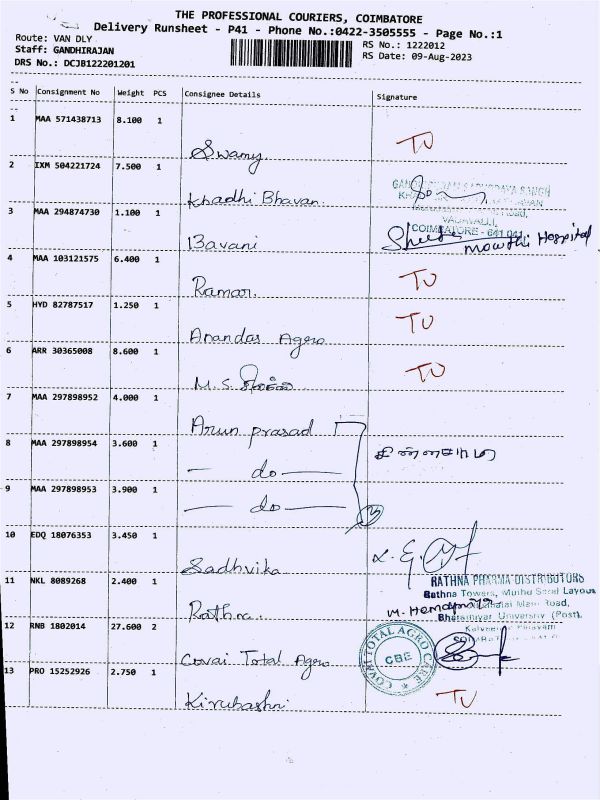 THE PROFESSIONAL COURIERS, COIMBATORE
Delivery Runsheet - P41 - Phone No.:0422-3505555 - Page No.:1
Route: VAN DLY
Staff: GANDHIRAJAN
DRS No.: DCJB122201201
RS No.: 1222012
RS Date: 09-Aug-2023
S No Consignment No Weight PCS Consignee Details Signature
1 MAA 571438713 8.100 1
Swamy TU
2 IXM 504221724 7.500 1
Khadhi Bhavan.
3 MAA 294874730 1.100 1
VADAVALLI,
COIMBATORE - 641 041
Bavani Hospital
4 MAA 103121575 6.400 1
Raman. TU
5 HYD 82787517 1.250 1
Anandas Agero TU
6 ARR 30365008 8.600 1
M.S. TU
7 MAA 297898952 4.000 1
Arun prasad
8 MAA 297898954 3.600 1
— do —
9 MAA 297898953 3.900 1
— do — 3
10 EDQ 18076353 3.450 1
Sadhvika
11 NKL 8089268 2.400 1
RATHNA PHARMA DISTRIBUTORS
Rathna Towers,
Road,
Bharathiyar University (Post),
Rathna.
12 RNB 1802014 27.600 2
Covai Total Agero
COVAI TOTAL AGRO CARE
CBE
13 PRO 15252926 2.750 1
Kirubashri TU